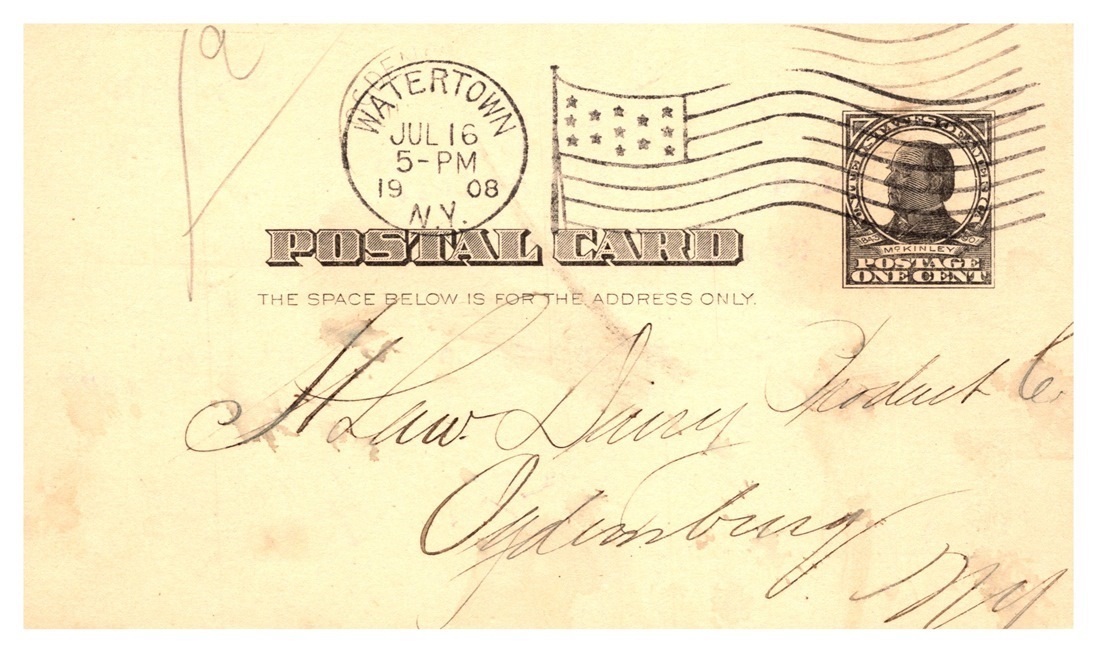 WATERTOWN
JUL 16
5-PM
19 08
N.Y.
UNITED STATES OF AMERICA
1843 1901
McKINLEY
POSTAGE
ONE CENT
POSTAL CARD
THE SPACE BELOW IS FOR THE ADDRESS ONLY.
St Law. Dairy Product Co.
Ogdensburg
NY